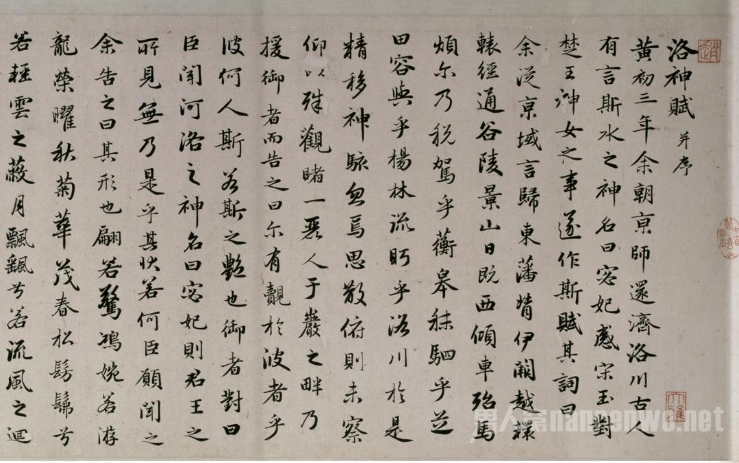 洛神賦 并序
黃初三年余朝京師還濟洛川古人
有言斯水之神名曰宓妃感宋玉對
楚王神女之事遂作斯賦其詞曰
余從京域言歸東藩背伊闕越轘
轅經通谷陵景山日既西傾車殆馬
煩尔乃稅駕乎蘅皋秣駟乎芝
田容與乎楊林流眄乎洛川於是
精移神駭忽焉思散俯則未察
仰以殊觀睹一麗人于巖之畔乃
援御者而告之曰尔有覿於彼者乎
彼何人斯若斯之艷也御者對曰
臣聞河洛之神名曰宓妃則君王之
所見無乃是乎其狀若何臣願聞之
余告之曰其形也翩若驚鴻婉若游
龍榮曜秋菊華茂春松髣髴兮
若輕雲之蔽月飄颻兮若流風之迴
大雅
男人窝nanrenwo.net